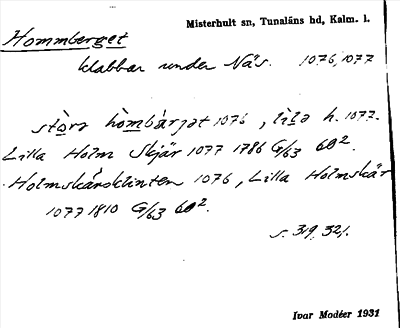 Misterhult sn, Tunaläns hd, Kalm. l.
Hommberget
klabbar under Näs. 1076, 1077
stòra hòmbàrjət 1076, lìla h. 1077.
Lilla Holm Skjär 1077 1786 G/63 60².
Holmskärsklinten 1076, Lilla Holmskär
1077 1810 G/63 60².
s. 319, 321.
Ivar Modéer 1931